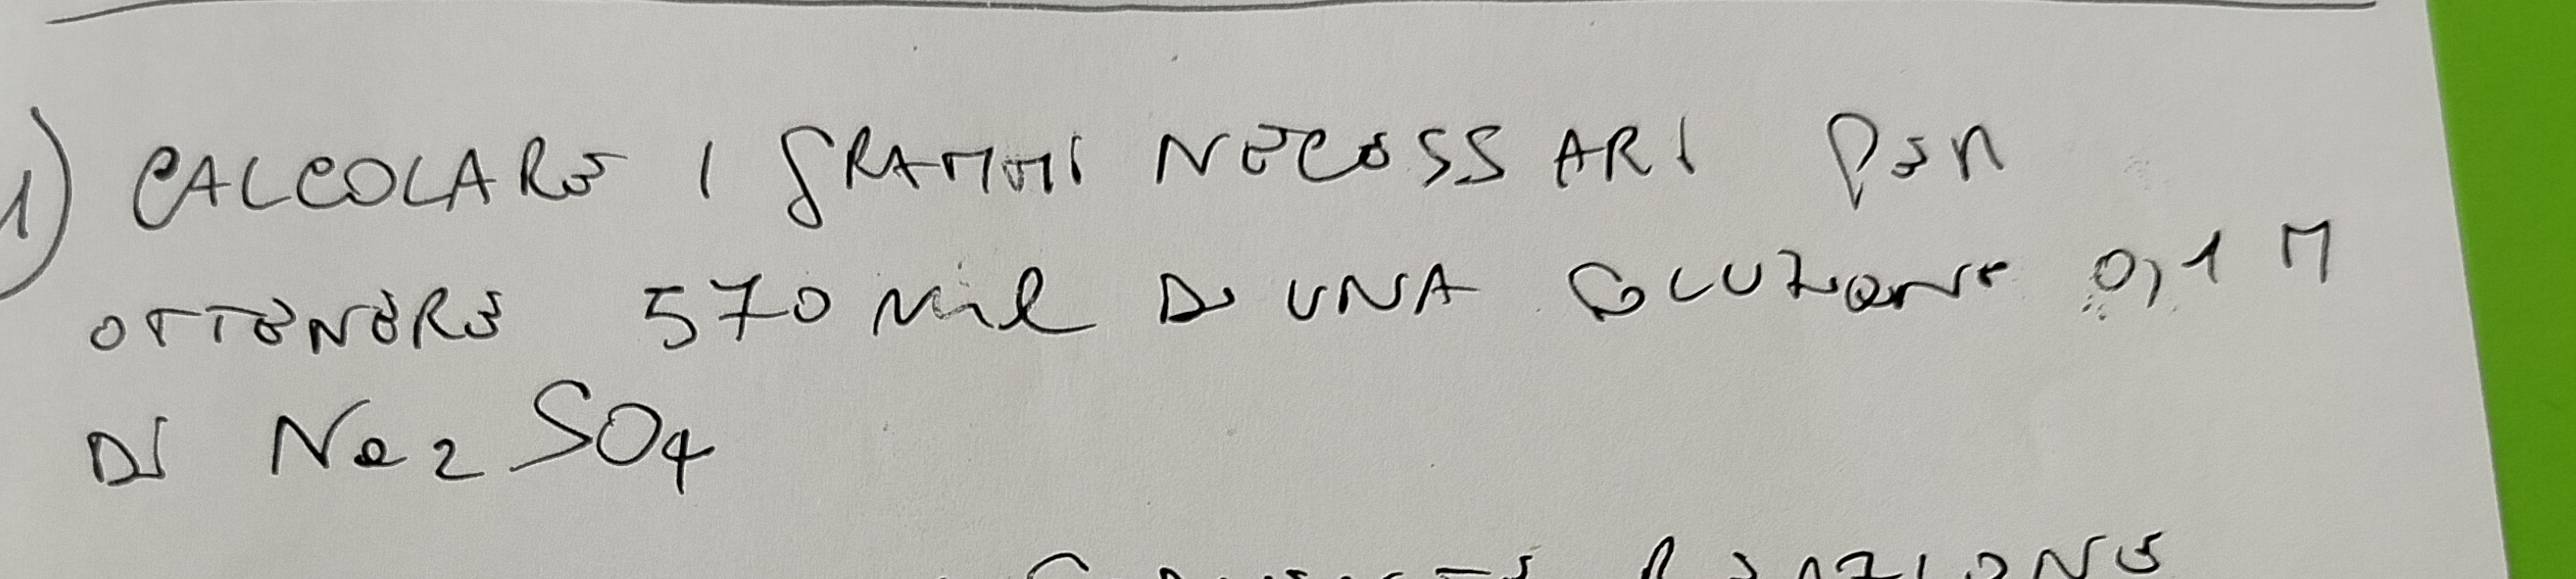 1) CALCOLARE I GRAMMI NECESSARI PER
OTTENERE 570 ml DI UNA SOLUZIONE 0,1 M
DI Na2SO4